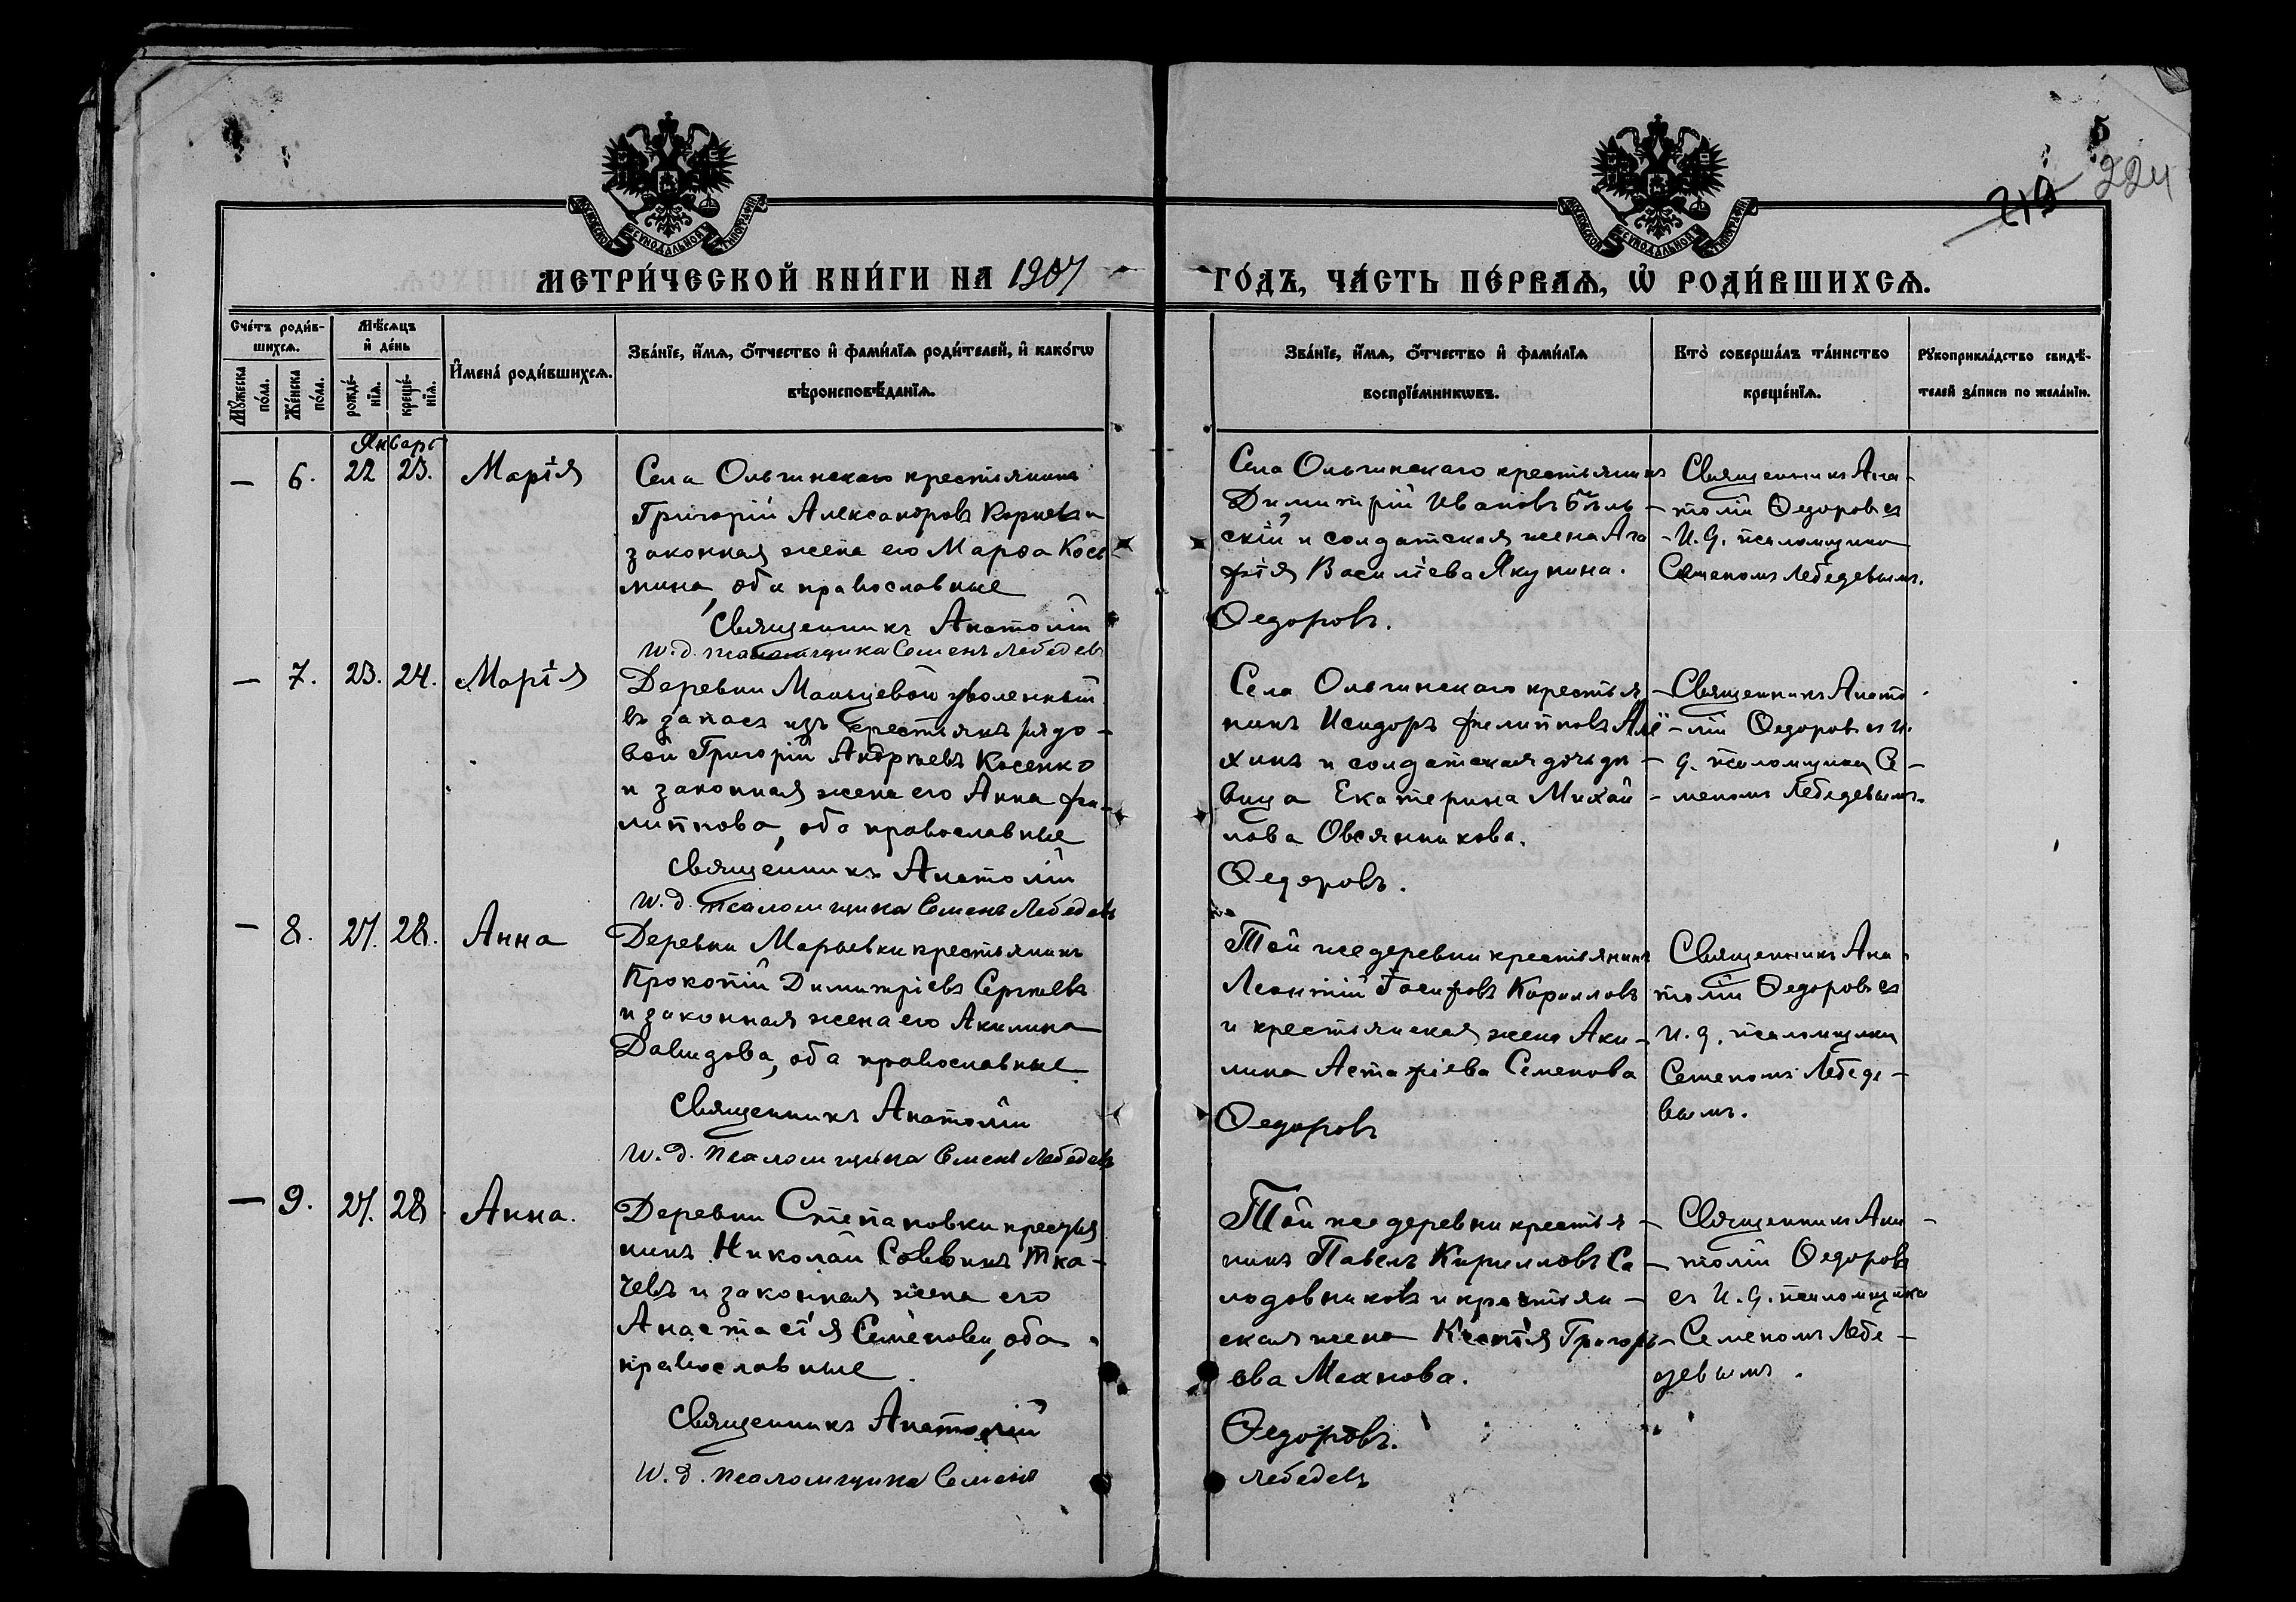 5
224
219
МОСКОВСКОЙ СѴНОДАЛЬНОЙ ТИПОГРАФІИ
МОСКОВСКОЙ СѴНОДАЛЬНОЙ ТИПОГРАФІИ
МЕТРИ́ЧЕСКОЙ КНИ́ГИ НА 1907
ГО́ДЪ, ЧА́СТЬ ПЕ́РВАѦ, Ѡ҆ РОДИ́ВШИХСѦ.
Сче́тъ роди́в-
шихсѧ.
Мꙋ́жеска по́ла.
Же́нска по́ла.
Мѣ́сѧцъ
и҆ де́нь
рожде́-
нїѧ.
креще́-
нїѧ.
И҆мена̀ роди́вшихсѧ.
Зва́нїе, и҆́мѧ, ѻ҆́тчество и҆ фами́лїѧ роди́телей, и҆ како́гѡ
вѣроисповѣ́данїѧ.
Зва́нїе, и҆́мѧ, ѻ҆́тчество и҆ фами́лїѧ
воспрїе́мникѡвъ.
Кто̀ соверша́лъ та́инство
креще́нїѧ.
Рꙋкоприкла́дство свидѣ́-
телей за́писи по жела́нїю.
Январь
— 6. 22 23. Марія
Села Ольгинскаго крестьянинъ
Григорій Александровъ Корневъ и
законная жена его Марѳа Кось
мина, оба православные
Священникъ Анатолій
И. д. псаломщика Семенъ Лебедевъ
Села Ольгинскаго крестьянинъ
Димитрій Ивановъ Бѣль-
скій и солдатская жена Ага
фія Васильева Якунина.
Ѳедоровъ.
Священникъ Ана-
толій Ѳедоровъ съ
И. д. псаломщика
Семеномъ Лебедевымъ.
— 7. 23. 24. Марія
Деревни Мальцевой уволенный
въ запасъ изъ крестьянъ рядо-
вой Григорій Андреевъ Косенко
и законная жена его Анна Фи-
липпова, оба православные
Священникъ Анатолій
И. д. псаломщика Семенъ Лебедевъ
Села Ольгинскаго крестья
нинъ Исидоръ Филипповъ Алё
хинъ и солдатская дочь дѣ-
вица Екатерина Михай-
лова Овсянникова.
Ѳедоровъ.
Священникъ Анато
лій Ѳедоровъ съ И.
д. псаломщика Се-
меномъ Лебедевымъ.
— 8. 27. 28. Анна
Деревни Марьевки крестьянинъ
Прокопій Димитріевъ Сергѣевъ
и законная жена его Акилина
Давидова, оба православные
Священникъ Анатолій
И. д. псаломщика Семенъ Лебедевъ
Той же деревни крестьянинъ
Леонтій Іосифовъ Кирилловъ
и крестьянская жена Аки-
лина Астафіева Семенова
Ѳедоровъ
Священникъ Ана-
толій Ѳедоровъ съ
И. д. псаломщика
Семеномъ Лебеде-
вымъ.
— 9. 27. 28 Анна.
Деревни Степановки крестья
нинъ Николай Саввинъ Тка-
чевъ и законная жена его
Анастасія Семенова, оба
православные.
Священникъ Анатолій
И. д. псаломщика Семенъ
Той же деревни крестья-
нинъ Павелъ Кирилловъ Са-
лодовниковъ и крестьян-
ская жена Ксенія Григорь-
ева Махнова.
Ѳедоровъ.
Лебедевъ
Священникъ Ана-
толій Ѳедоровъ
съ И. д. псаломщика
Семеномъ Лебе-
девымъ.